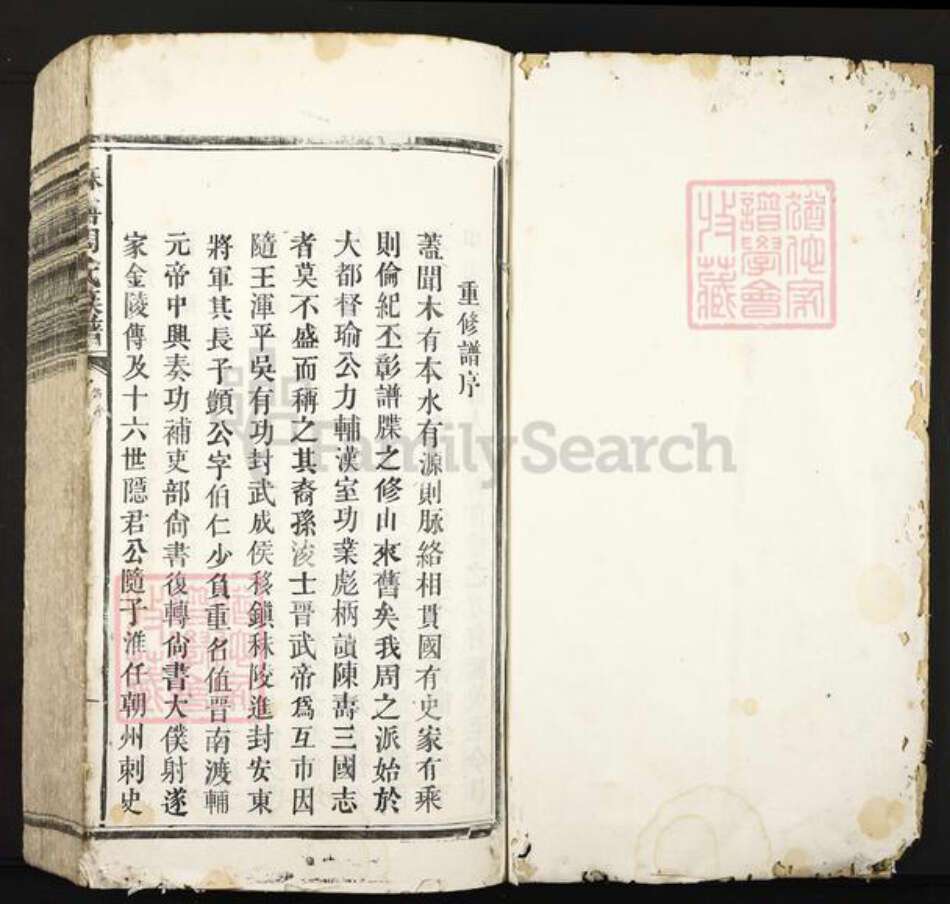 重修譜序
蓋聞木有本水有源則脈絡相貫國有史家有乘
則倫紀丕彰譜牒之修由來舊矣我周之派始於
大都督瑜公力輔漢室功業彪柄讀陳壽三國志
者莫不盛而稱之其裔孫浚士晉武帝爲互市因
隨王渾平吳有功封武成侯移鎭秣陵進封安東
將軍其長子顗公字伯仁少負重名值晉南渡輔
元帝中興奏功補吏部尙書復轉尙書大僕射遂
家金陵傳及十六世隱君公隨子淮任朝州刺史
周氏族譜
猶他家
譜學會
收藏
FamilySearch